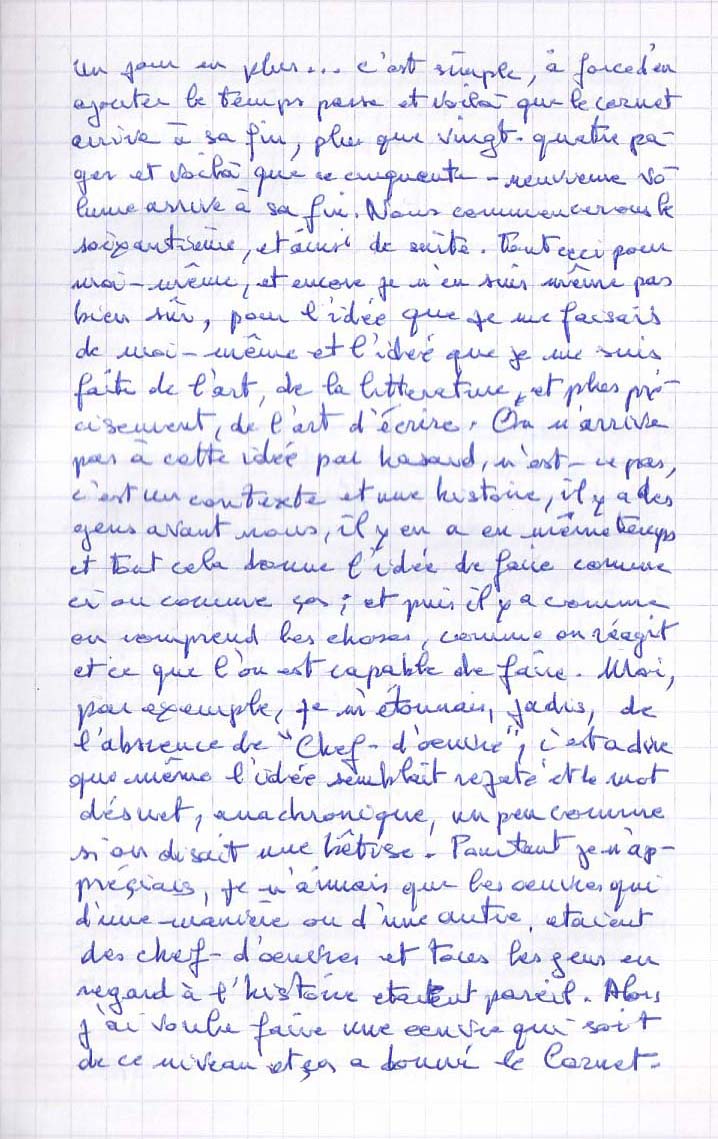 un jour en plus... c'est simple, à force d'en
ajouter le temps passe et voilà que le carnet
arrive à sa fin, plus que vingt-quatre pa-
ges et voilà que ce cinquante-neuvième vo-
lume arrive à sa fin. Nous commencerons le
soixantième, et ainsi de suite. Tout ceci pour
moi-même, et encore je n'en suis même pas
bien sûr, pour l'idée que je me faisais
de moi-même et l'idée que je me suis
faite de l'art, de la littérature, et plus pré-
cisement, de l'art d'écrire. On n'arrive
pas à cette idée par hasard, n'est-ce pas,
c'est un contexte et une histoire, il y a des
gens avant nous, il y en a en même temps
et tout cela donne l'idée de faire comme
ci ou comme ça; et puis il y a comme
on comprend les choses, comme on réagit
et ce que l'on est capable de faire. Moi,
par exemple, je m'étonnais, jadis, de
l'absence de "Chef-d'oeuvre", c'est a dire
que même l'idée semblait rejeté et le mot
désuet, anachronique, un peu comme
si on disait une bêtise. Pourtant je n'ap-
préciais, je n'aimais que les oeuvres qui
d'une manière ou d'une autre, etaient
des chef-d'oeuvres et tous les gens en
regard à l'histoire etaient pareil. Alors
j'ai voulu faire une oeuvre qui soit
de ce niveau et ça a donné le Carnet.